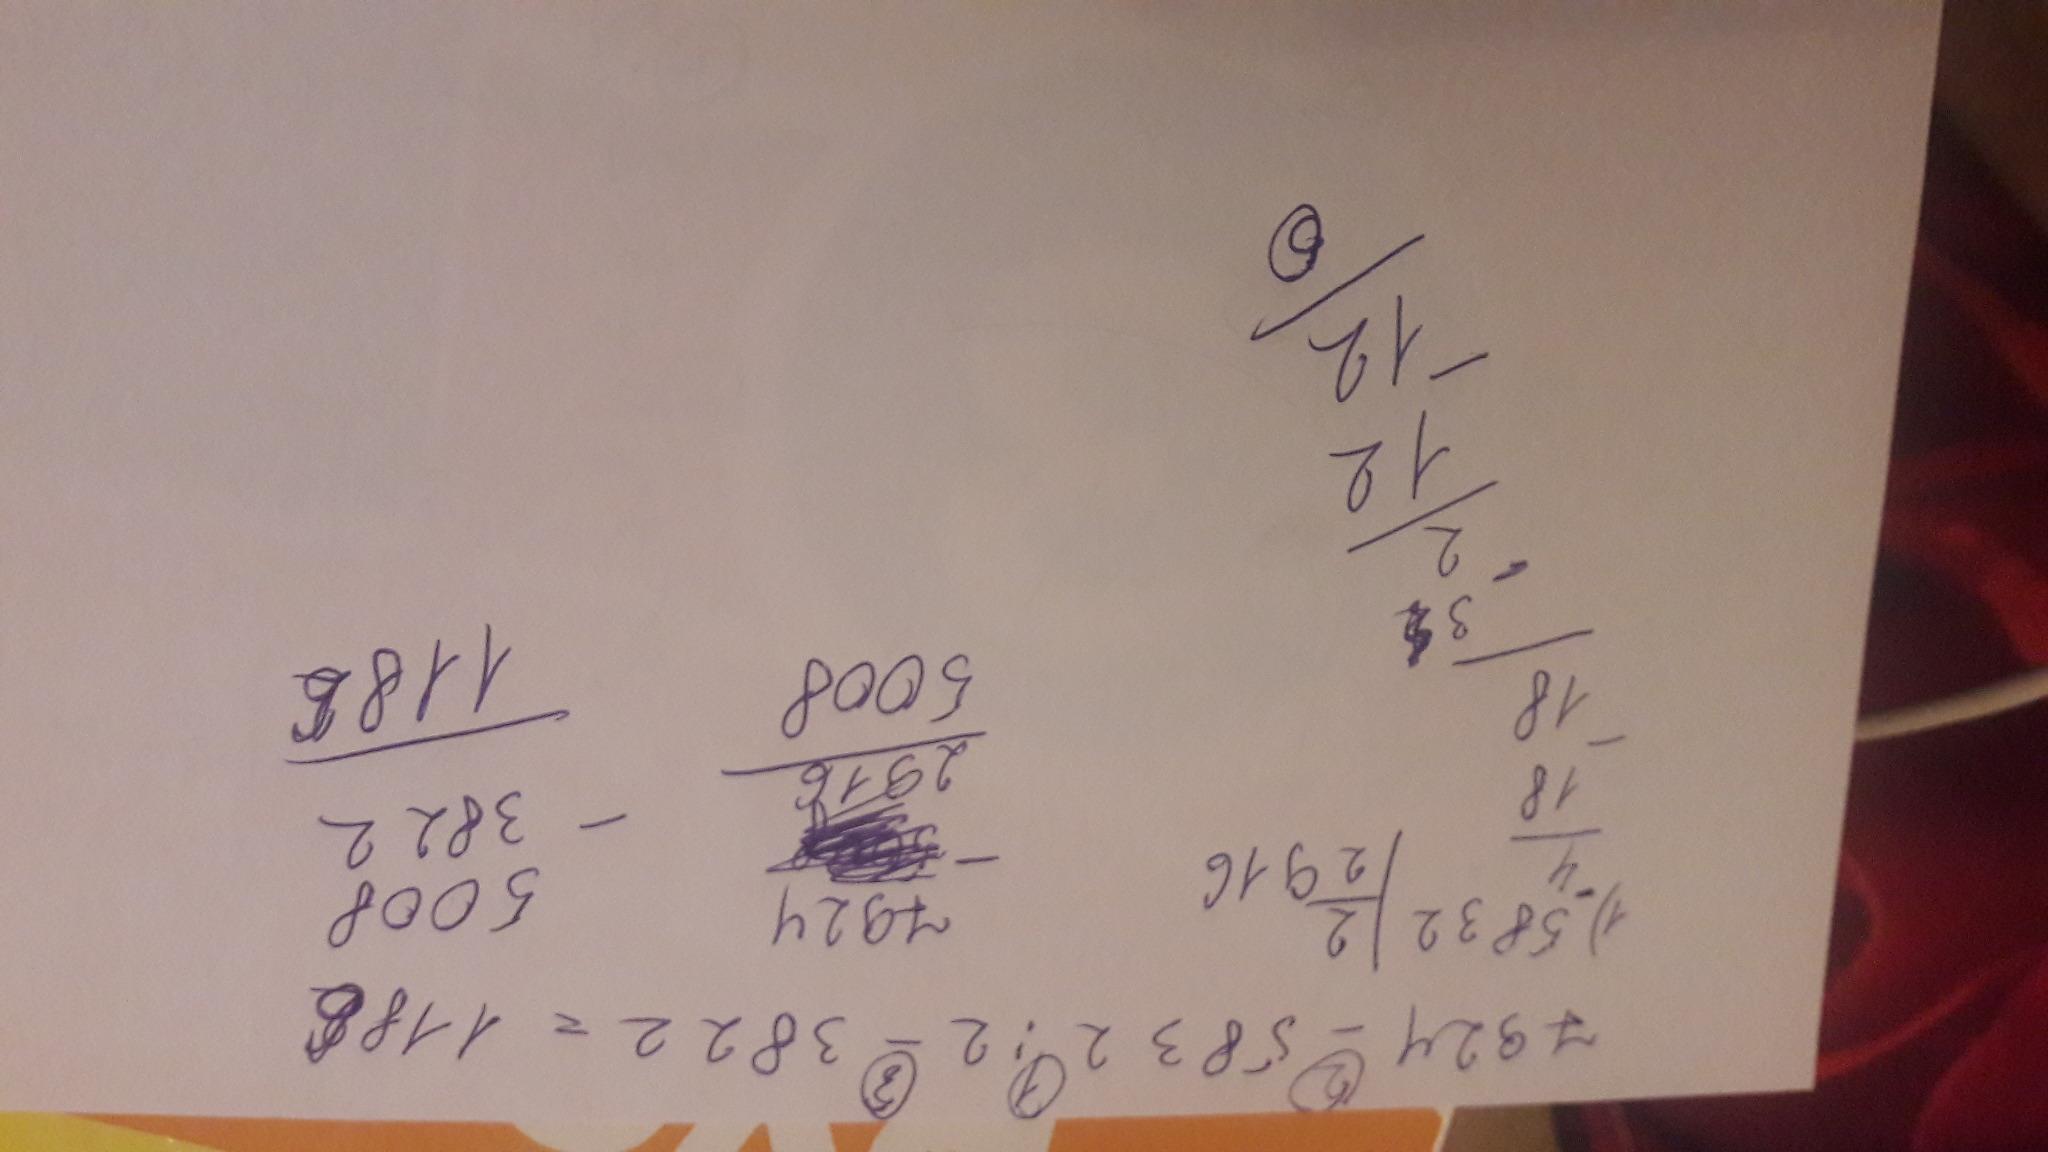 ② ① ③
7924 - 5832 : 2 - 3822 = 1186
1) 5832 | 2
- 4 2916
18
- 18
3
- 2
12
- 12
0
7924
-
2916
5008
5008
- 3822
1186